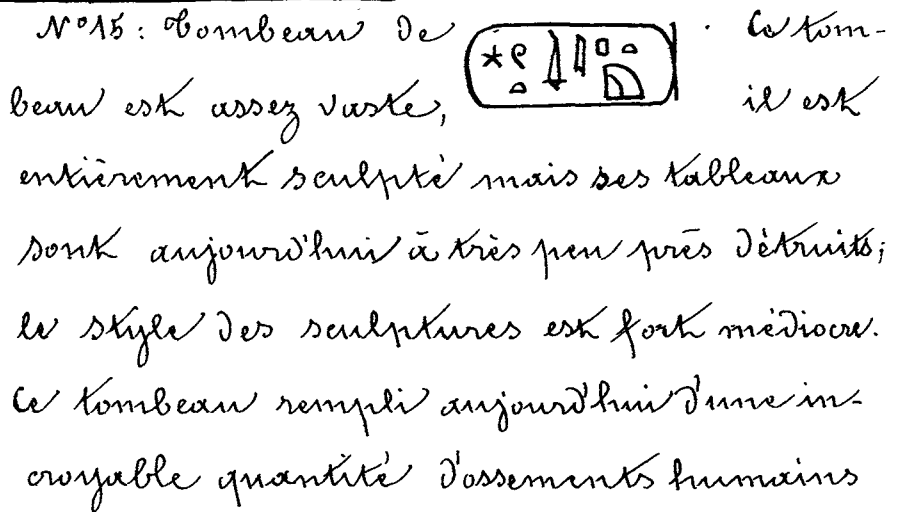 N° 15 : Tombeau de . Ce tom-
beau est assez vaste, il est
entièrement sculpté mais ses tableaux
sont aujourd'hui à très peu près détruits;
le style des sculptures est fort médiocre.
Ce tombeau rempli aujourd'hui d'une in-
croyable quantité d'ossements humains